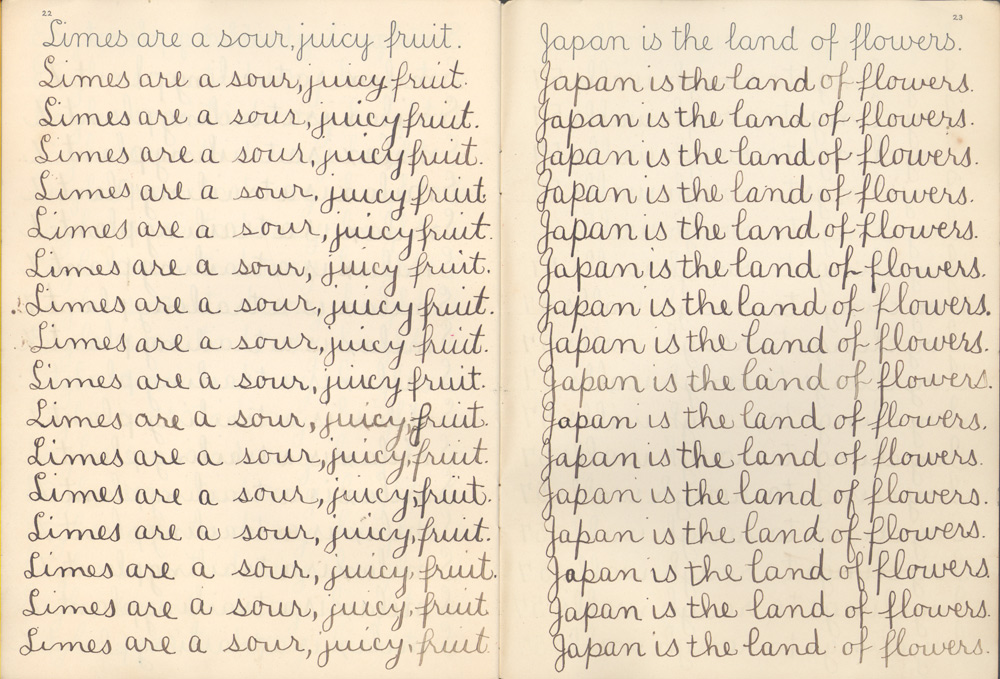 22
Limes are a sour, juicy fruit.
Limes are a sour, juicy fruit.
Limes are a sour, juicy fruit.
Limes are a sour, juicy fruit.
Limes are a sour, juicy fruit.
Limes are a sour, juicy fruit.
Limes are a sour, juicy fruit.
Limes are a sour, juicy fruit.
Limes are a sour, juicy fruit.
Limes are a sour, juicy fruit.
Limes are a sour, juicy, fruit.
Limes are a sour, juicy, fruit.
Limes are a sour, juicy, fruit.
Limes are a sour, juicy, fruit.
Limes are a sour, juicy, fruit.
Limes are a sour, juicy, fruit
Limes are a sour, juicy, fruit.
23
Japan is the land of flowers.
Japan is the land of flowers.
Japan is the land of flowers.
Japan is the land of flowers.
Japan is the land of flowers.
Japan is the land of flowers.
Japan is the land of flowers.
Japan is the land of flowers.
Japan is the land of flowers.
Japan is the land of flowers.
Japan is the land of flowers.
Japan is the land of flowers.
Japan is the land of flowers.
Japan is the land of flowers.
Japan is the land of flowers.
Japan is the land of flowers.
Japan is the land of flowers.